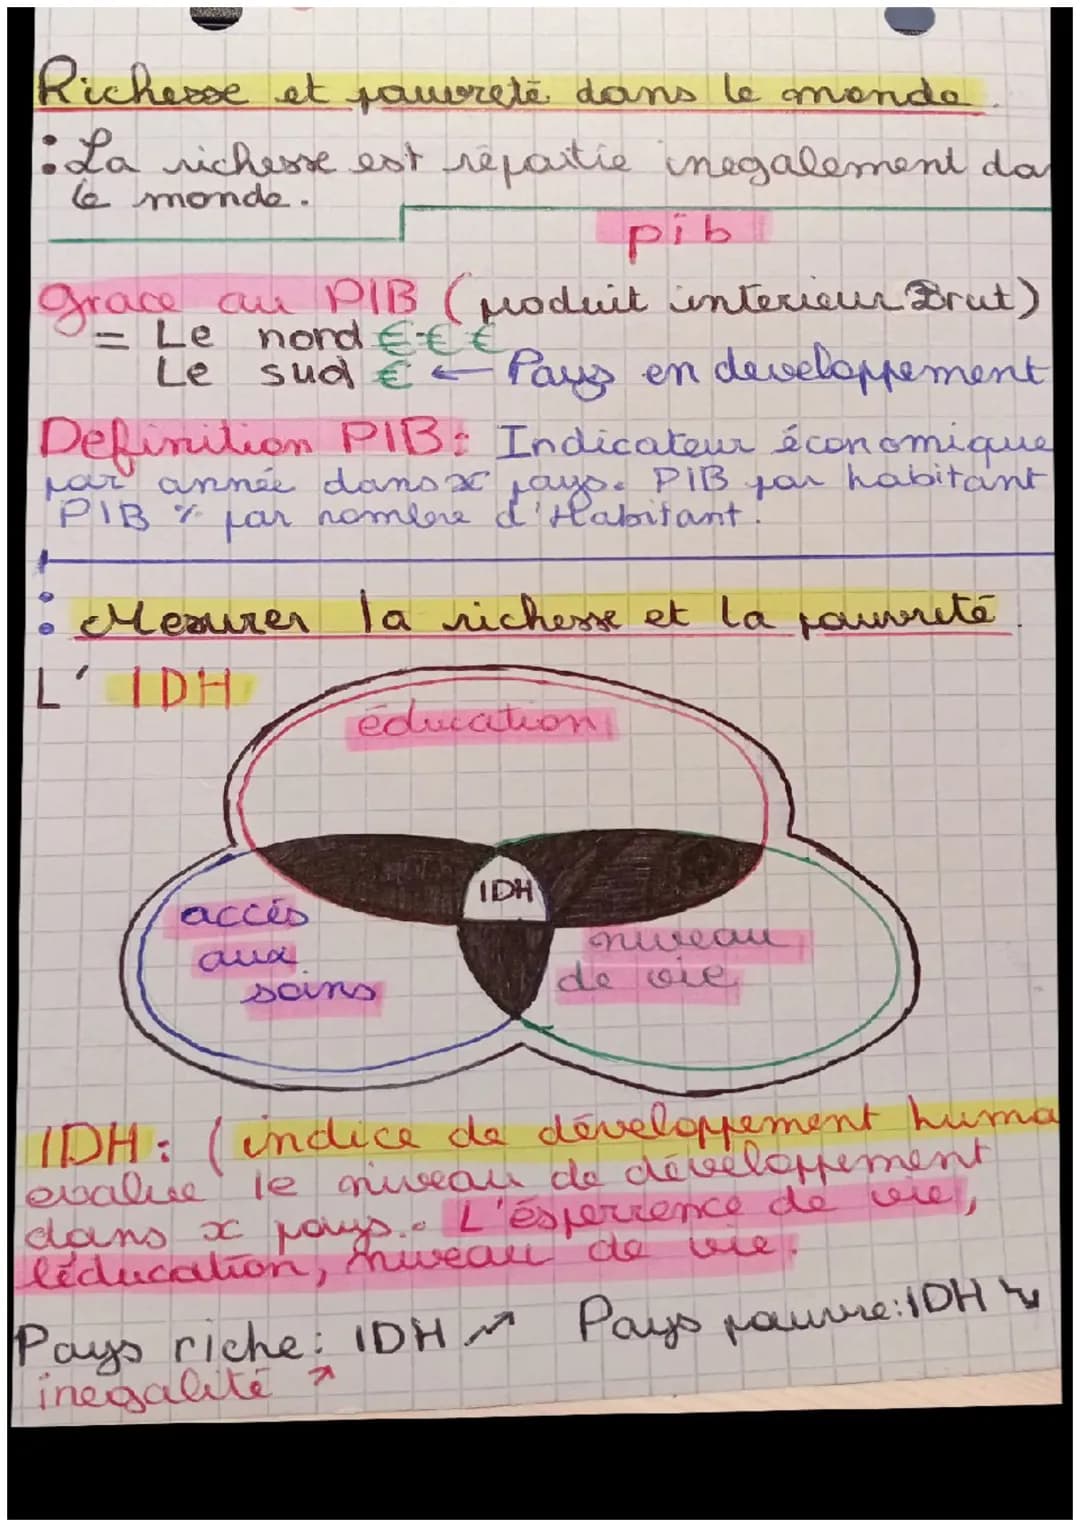 Richesse et pauvreté dans le monde.
: La richesse est répartie inegalement da
le monde.
pib
grace au PIB (produit interieur Brut)
= Le nord €€€
Le sud € ← Pays en developpement
Definition PIB: Indicateur économique
par année dans x pays. PIB par habitant
PIB % par nombre d'Habitant.
: Mesurer la richesse et la pauvreté.
L' IDH
éducation
IDH
accés
aux
soins
niveau
de vie
IDH: (indice de développement huma
evalue le niveau de développement
dans x pays. L'ésperrence de vie,
l'éducation, niveau de vie.
Pays riche: IDH ↗ Pays pauvre: IDH ↘
inegalité ↗